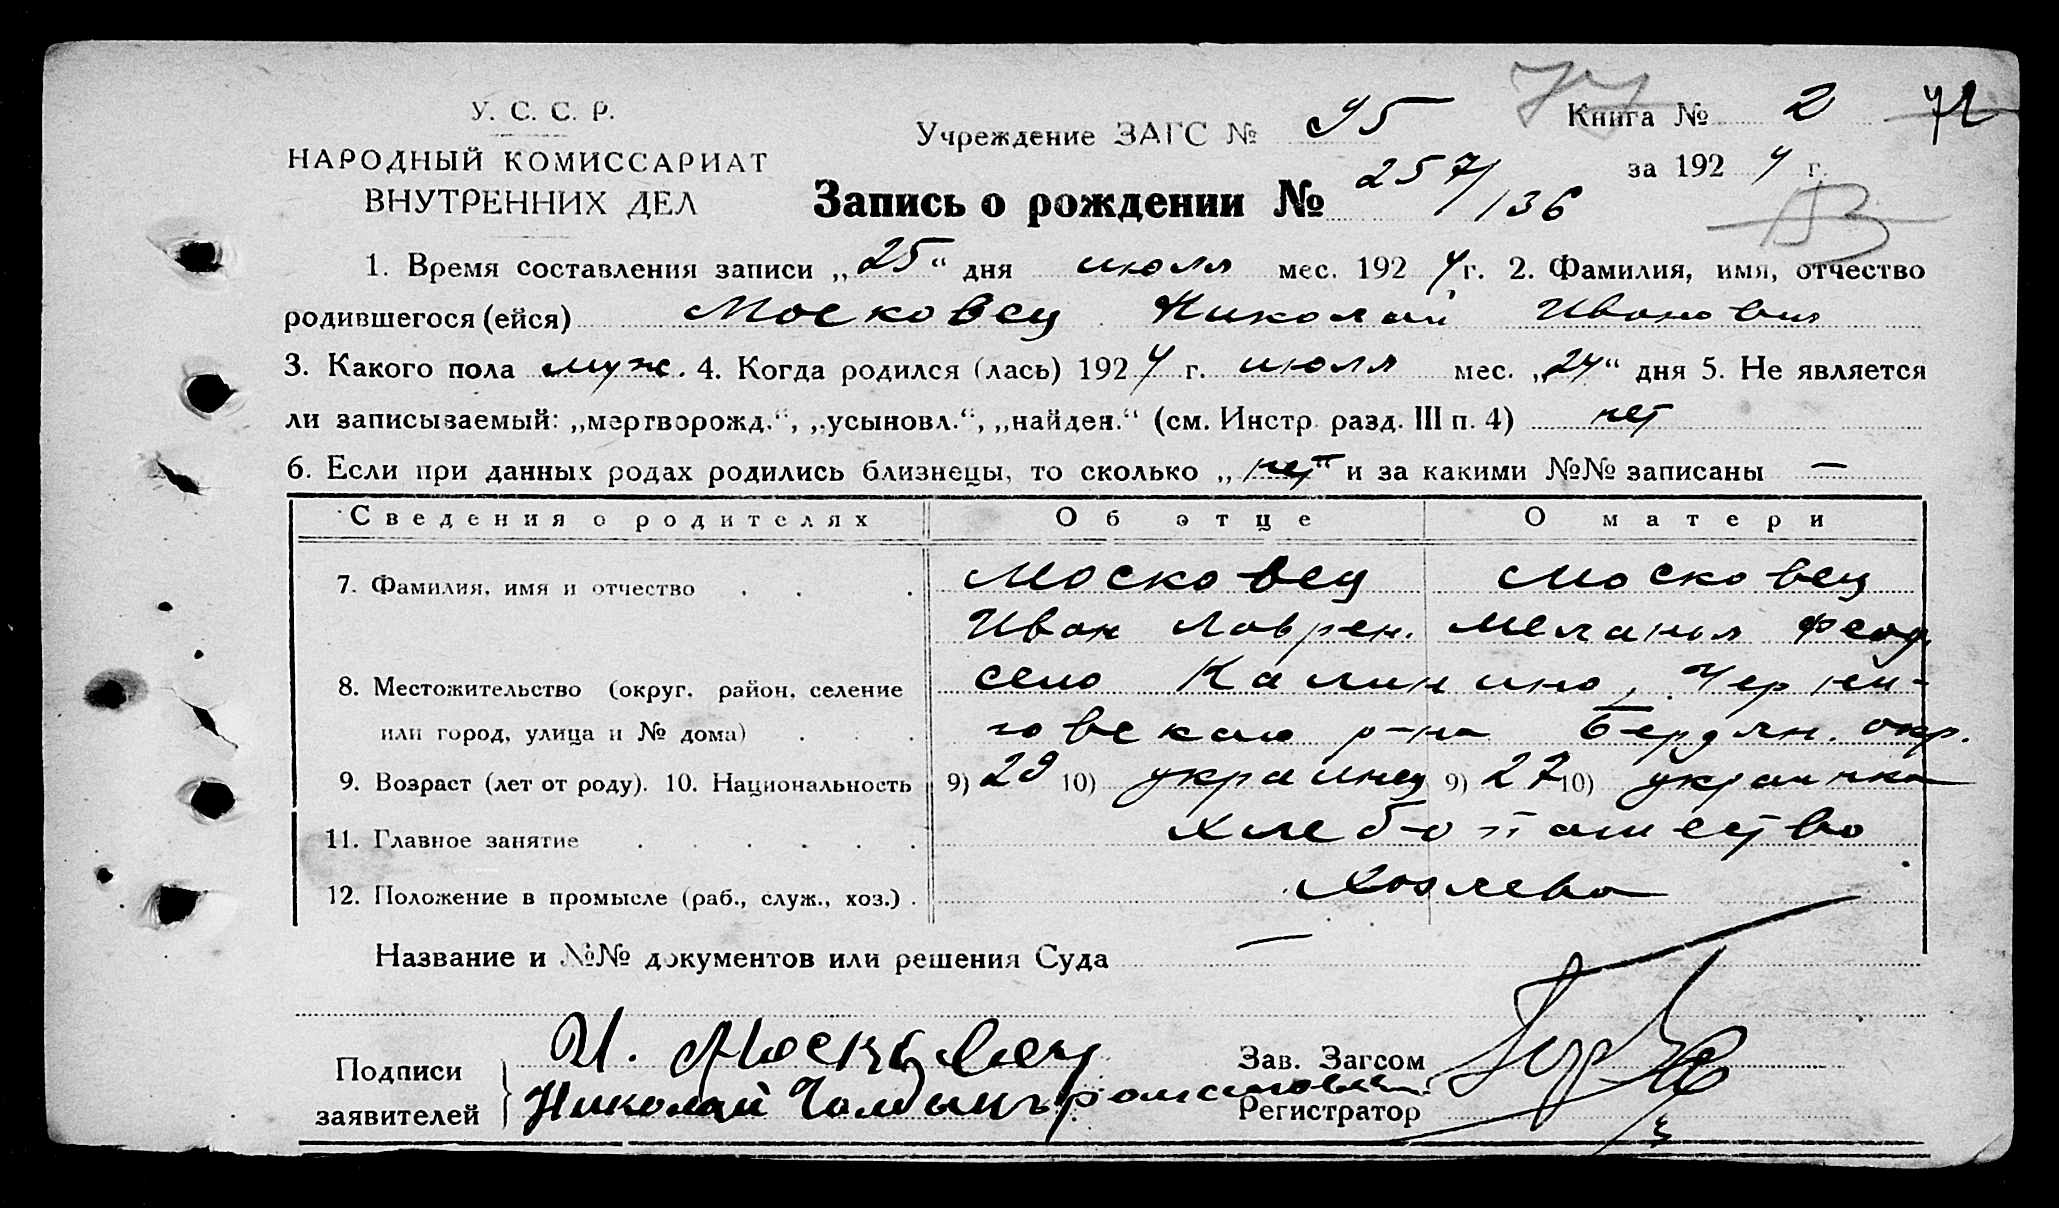 У. С. С. Р.
НАРОДНЫЙ КОМИССАРИАТ
ВНУТРЕННИХ ДЕЛ
Учреждение ЗАГС № 95
Книга № 2
за 192 4 г.
Запись о рождении № 257/136
1. Время составления записи „25“ дня июля мес. 192 4 г. 2. Фамилия, имя, отчество
родившегося (ейся) Московец Николай Иванович
3. Какого пола муж. 4. Когда родился (лась) 192 4 г. июля мес. „24“ дня 5. Не является
ли записываемый: „мертворожд.“, „усыновл.“, „найден.“ (см. Инстр. разд. III п. 4) нет
6. Если при данных родах родились близнецы, то сколько „нет“ и за какими №№ записаны —
Сведения о родителях Об отце О матери
7. Фамилия, имя и отчество Московец Московец
Иван Лаврен. Меланья Феод.
8. Местожительство (округ, район, селение село Калинино, Черни-
или город, улица и № дома) говского р-на Бердян. окр.
9. Возраст (лет от роду). 10. Национальность 9) 29 10) украинец 9) 27 10) украинка
11. Главное занятие хлебопашество
12. Положение в промысле (раб., служ., хоз.) хозяева
Название и №№ документов или решения Суда —
Подписи заявителей
И. Московец
Николай
Зав. Загсом
Регистратор